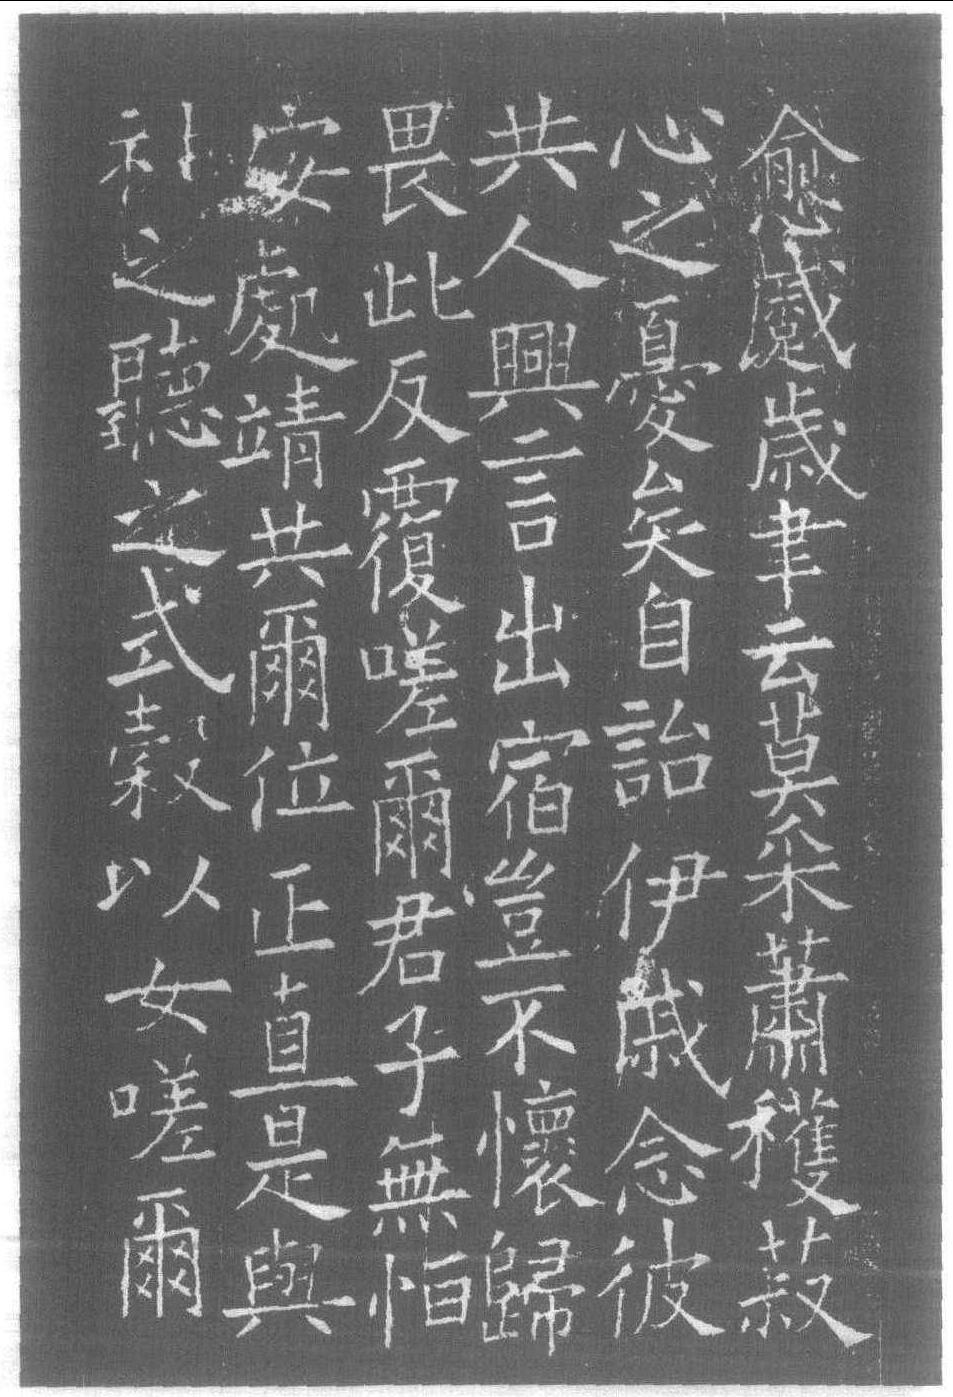 愈蹙歲聿云莫采蕭穫菽
心之憂矣自詒伊戚念彼
共人興言出宿豈不懷歸
畏此反覆嗟爾君子無恒
安處靖共爾位正直是與
神之聽之式穀以女嗟爾